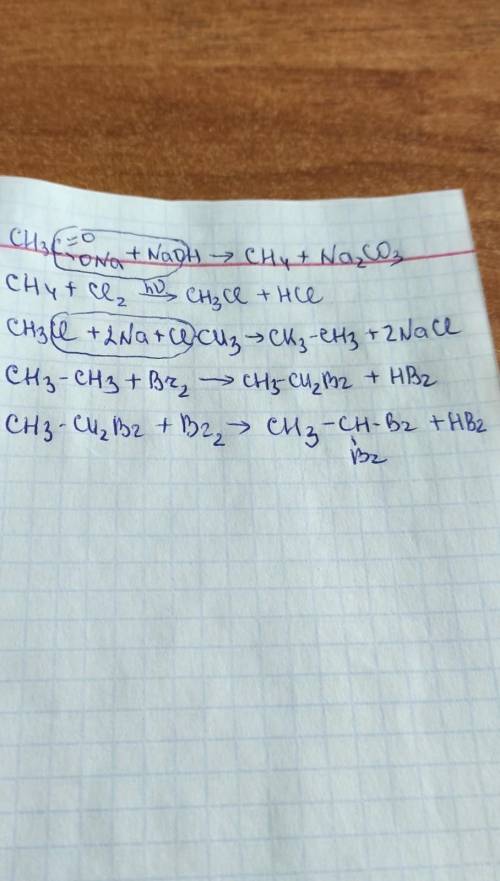 CH3-C=O ONa + NaOH → CH4 + Na2CO3
CH4 + Cl2 hν→ CH3Cl + HCl
CH3Cl + 2Na + Cl CH3 → CH3-CH3 + 2NaCl
CH3-CH3 + Br2 → CH3-CH2Br + HBr
CH3-CH2Br + Br2 → CH3-CH-Br + HBr
Br